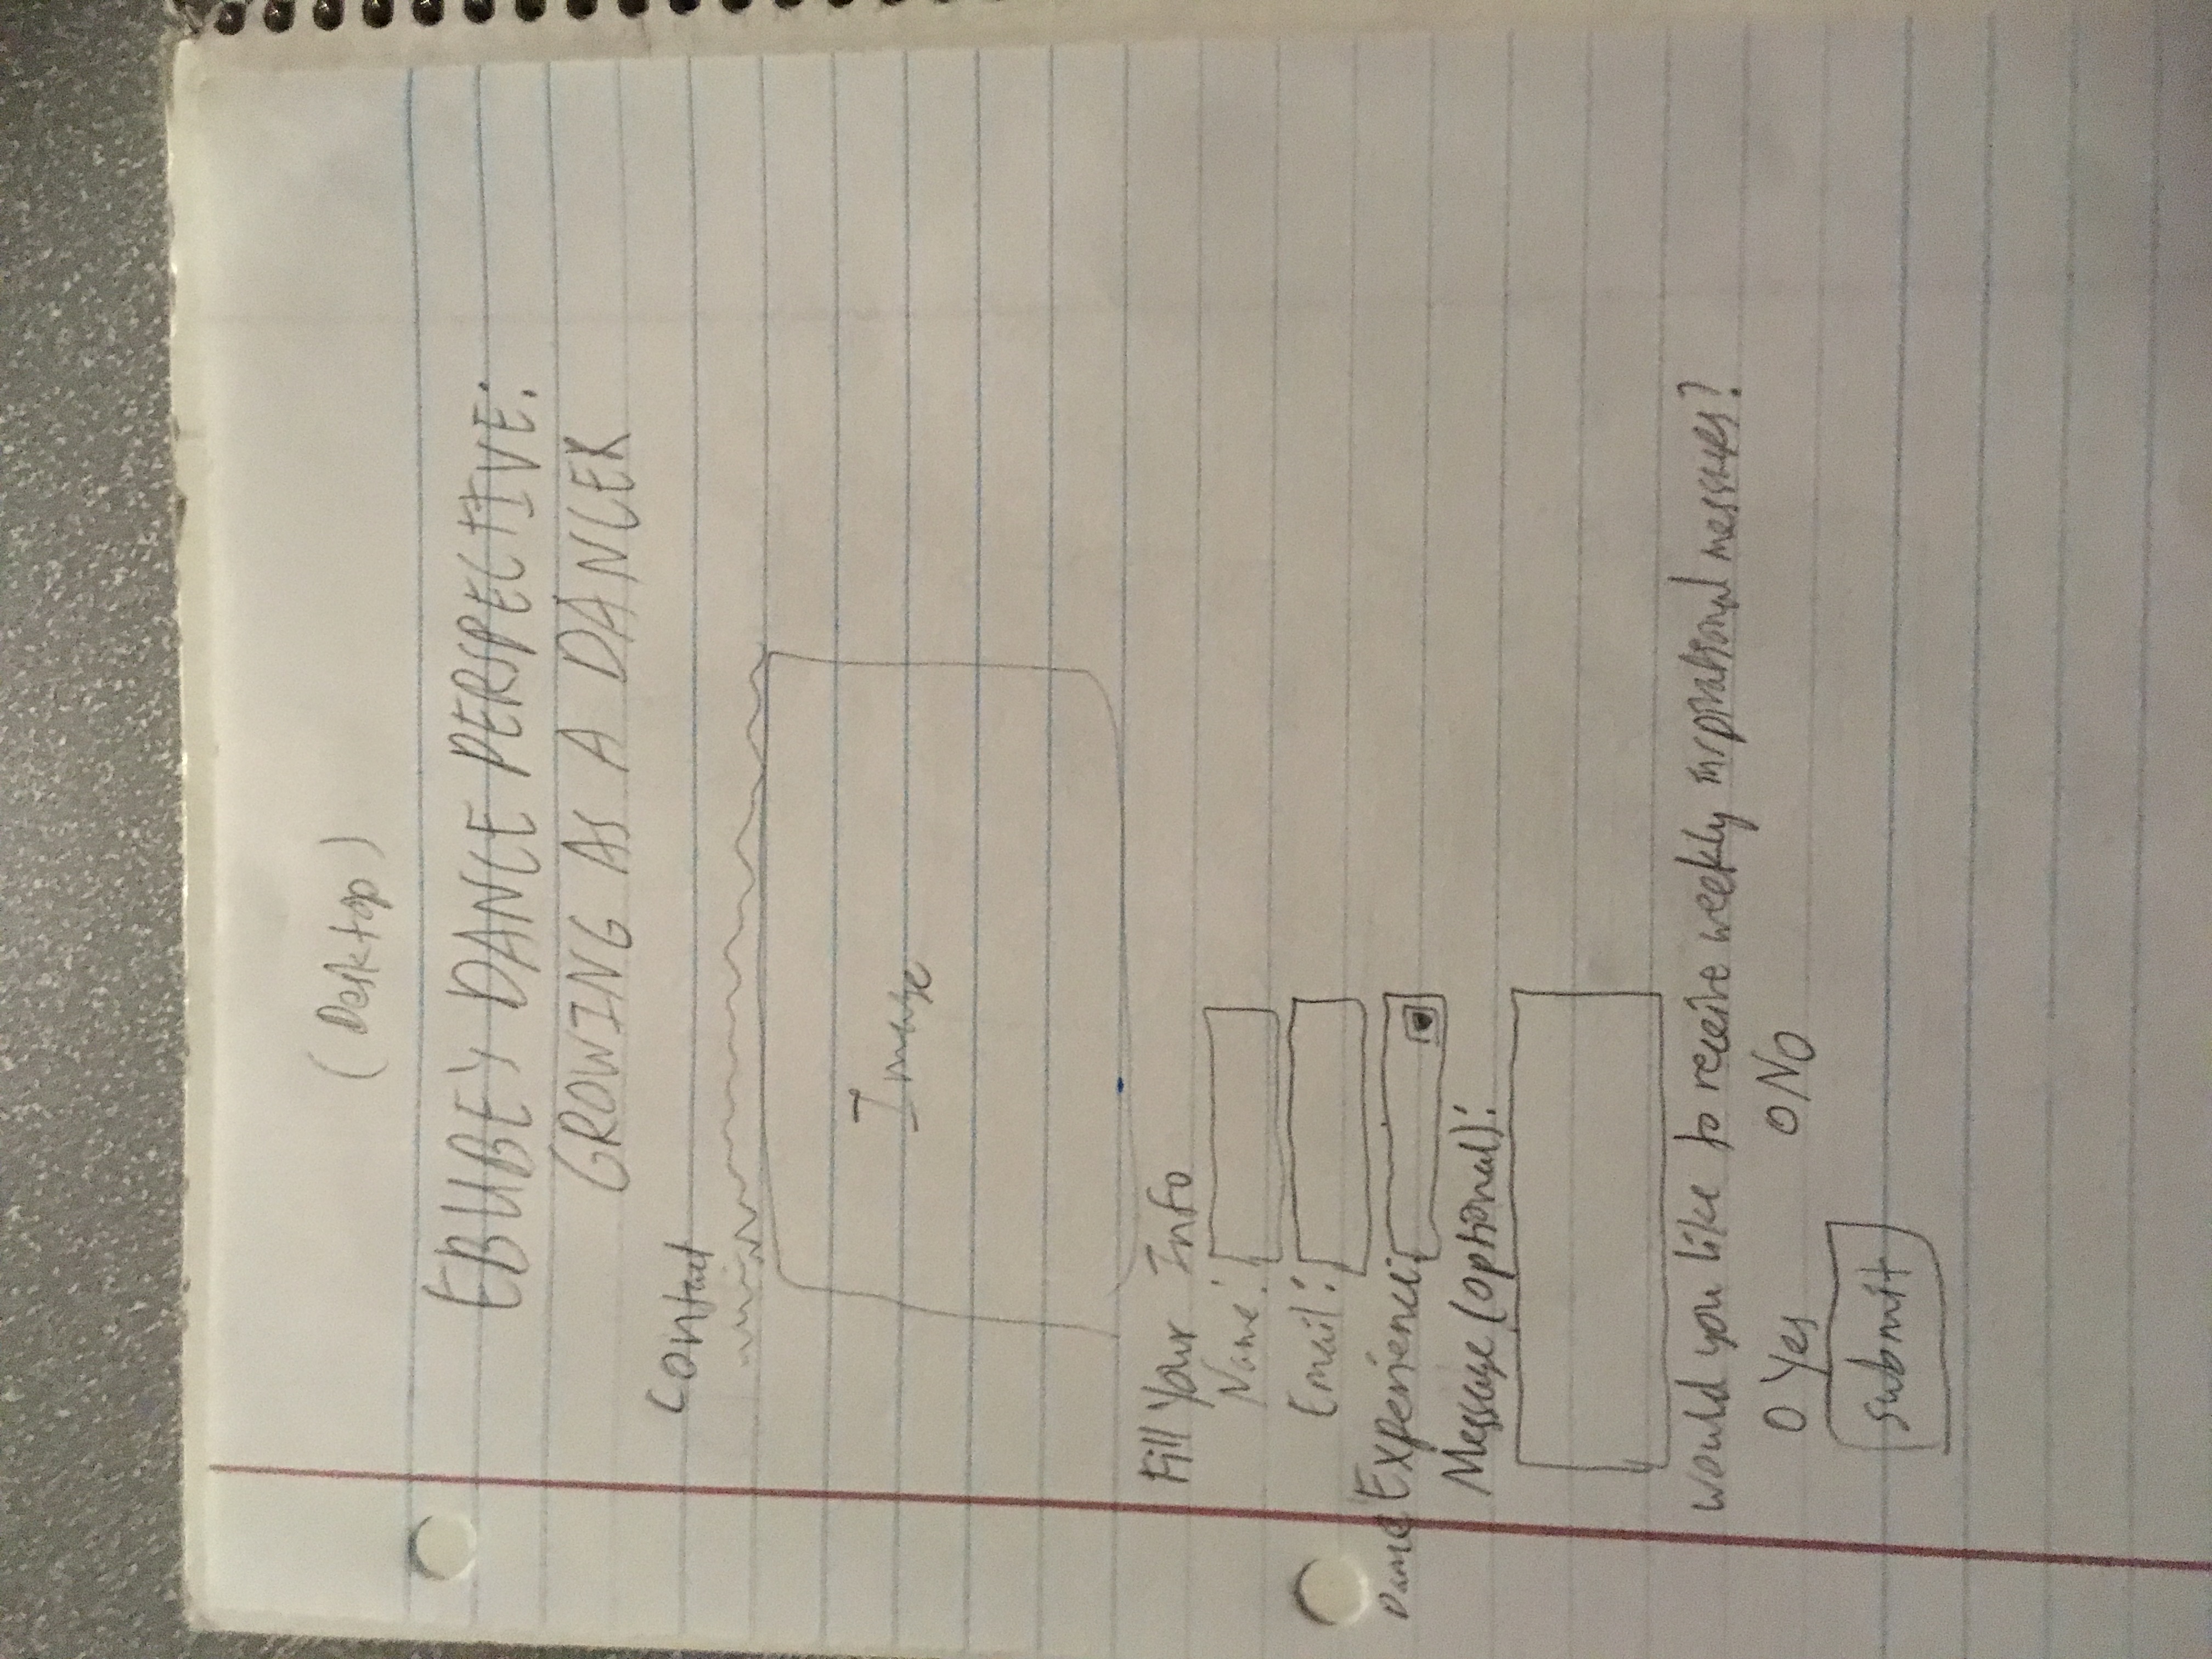 (Desktop)
EBUBE'S DANCE PERSPECTIVE:
GROWING AS A DANCER
Contact
Image
Fill Your Info
Name:
Email:
Dance Experience:
Message (optional):
would you like to receive weekly inspirational messages?
O Yes O NO
submit